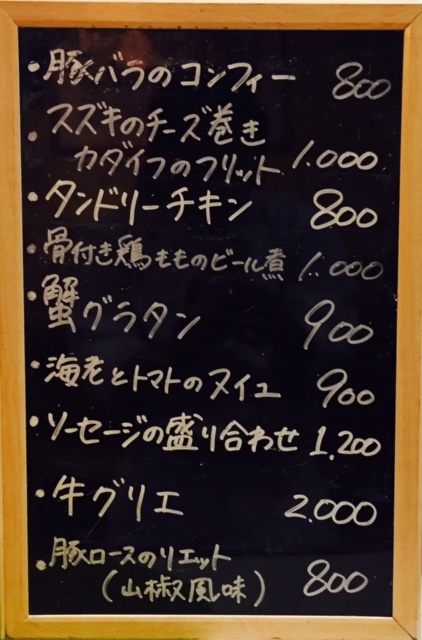 ・豚バラのコンフィー 800
・スズキのチーズ巻き
カダイフのフリット 1.000
・タンドリーチキン 800
・骨付き鶏もものビール煮 1.000
・蟹グラタン 900
・海老とトマトのヌイユ 900
・ソーセージの盛り合わせ 1,200
・牛グリエ 2.000
・豚ロースのリエット
(山椒風味) 800